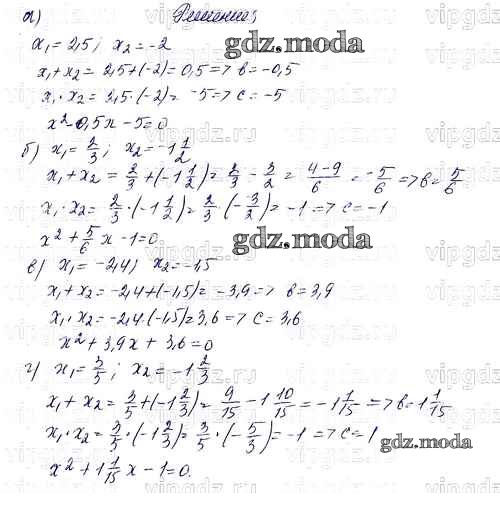 а) Решение;
x₁ = 2,5; x₂ = -2
x₁+x₂ = 2,5+(-2) = 0,5 => b = -0,5
x₁·x₂ = 2,5·(-2) = -5 => c = -5
x²-0,5x-5=0
б) x₁ = 2/3; x₂ = -1 1/2
x₁+x₂ = 2/3 + (-1 1/2) = 2/3 - 3/2 = (4-9)/6 = -5/6 => b = 5/6
x₁·x₂ = 2/3·(-1 1/2) = 2/3·(-3/2) = -1 => c = -1
x² + 5/6 x - 1 = 0
в) x₁ = -2,4; x₂ = -1,5
x₁+x₂ = -2,4+(-1,5) = -3,9 => b = 3,9
x₁·x₂ = -2,4·(-1,5) = 3,6 => c = 3,6
x² + 3,9x + 3,6 = 0
г) x₁ = 3/5; x₂ = -1 2/3
x₁ + x₂ = 3/5 + (-1 2/3) = 9/15 - 1 10/15 = -1 1/15 => b = 1 1/15
x₁·x₂ = 3/5·(-1 2/3) = 3/5·(-5/3) = -1 => c = 1
x² + 1 1/15 x - 1 = 0.
gdz.moda
gdz.moda
gdz.moda
vipgdz.ru